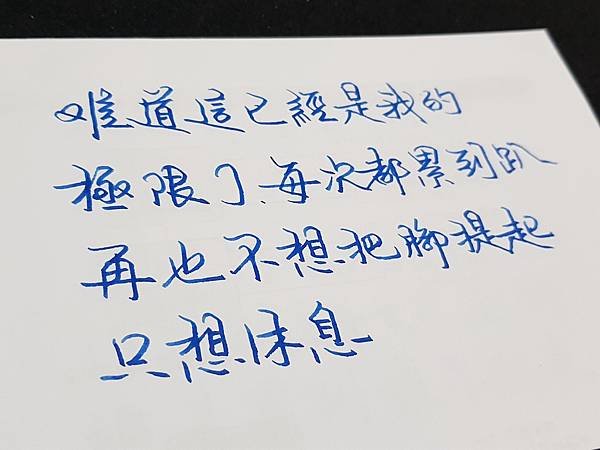 难道這已經是我的
極限了、每次都累到趴
再也不想把腳提起
只想休息